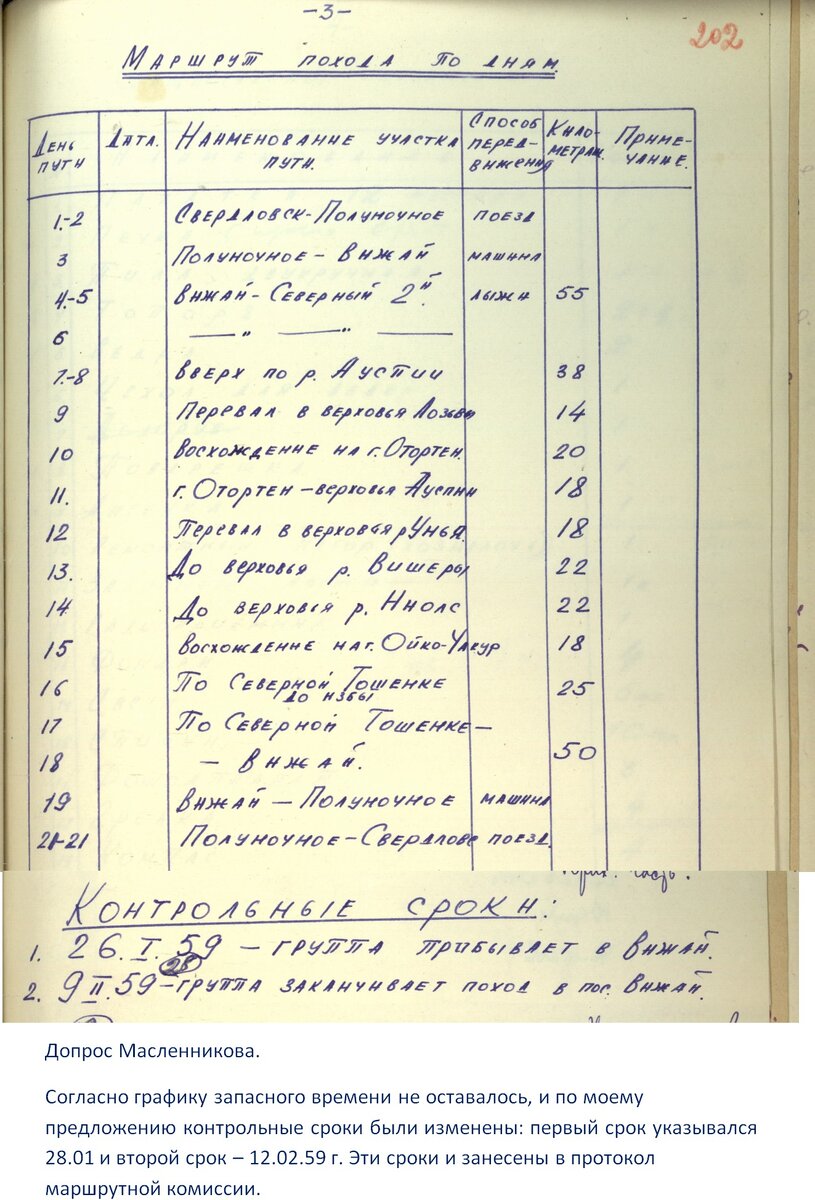 -3-
202
Маршрут похода по дням.
День пути
Дата.
Наименование участка пути.
Способ передвижения
Кило-метраж.
Приме-чание.
1.-2 Свердловск-Полуночное поезд
3 Полуночное - Вижай машина
4.-5 Вижай-Северный 2й. лыжи 55
6 — " — " —
7.-8 Вверх по р. Аустии 38
9 Перевал в верховья Лозьвы 14
10 Восхождение на г. Отортен. 20
11. г. Отортен - верховья Ауспии 18
12 Перевал в верховья р Унья. 18
13. До верховья р. Вишеры 22
14 До верховья р. Ниолс 22
15 Восхождение на г. Ойко-Чакур 18
16 По Северной Тошенке до избы 25
17 По Северной Тошенке -
18 - Вижай. 50
19 Вижай - Полуночное машина
21-21 Полуночное-Свердловс поезд.
часть.
Контрольные сроки:
1. 26.I.59 - группа прибывает в Вижай.
28
2. 9 II.59 - группа заканчивает поход в пос. Вижай.
Допрос Масленникова.
Согласно графику запасного времени не оставалось, и по моему
предложению контрольные сроки были изменены: первый срок указывался
28.01 и второй срок – 12.02.59 г. Эти сроки и занесены в протокол
маршрутной комиссии.